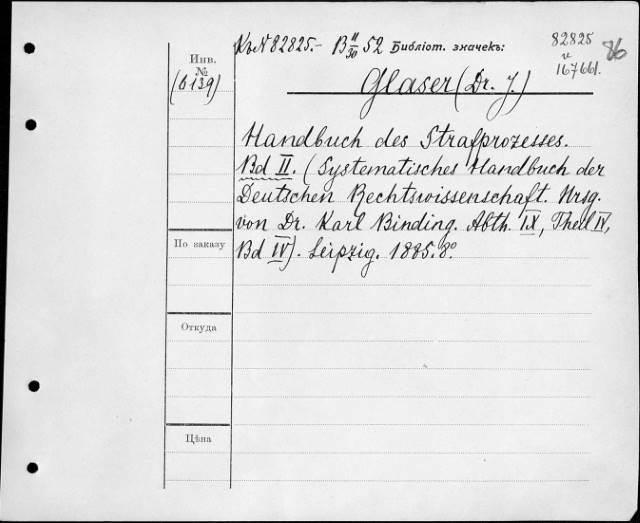 Къ N 82825.- B 11/30 52 Библіот. значекъ:
82825
и
167661.
86
Инв.
№
(6139)
Glaser (Dr. J.)
Handbuch des Strafprozesses.
Bd II. (Systematisches Handbuch der
Deutschen Rechtswissenschaft. Hrsg.
von Dr. Karl Binding. Abth. IX, Theil IV,
Bd IV). Leipzig. 1885. 8°
По заказу
Откуда
Цѣна